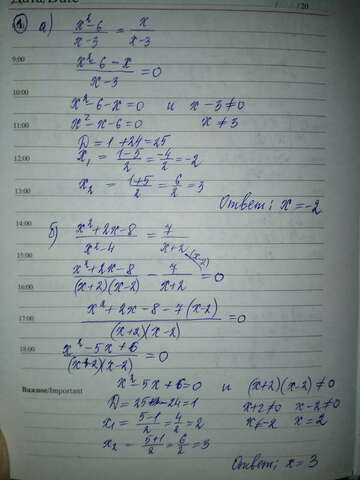 Дата/Date / /20
1. а) x²-6/x-3 = x/x-3
9:00
x²-6-x/x-3 = 0
10:00
x²-6-x=0 и x-3≠0
11:00
x²-x-6=0 x≠3
D=1+24=25
12:00
x₁ = 1-5/2 = -4/2 = -2
13:00
x₂ = 1+5/2 = 6/2 = 3
Ответ: x=-2
14:00
б) x²+2x-8/x²-4 = 7/x+2
15:00
x²+2x-8/(x+2)(x-2) - 7/x+2 (x-2) = 0
16:00
x²+2x-8-7(x-2)/(x+2)(x-2) = 0
17:00
18:00
x²-5x+6/(x+2)(x-2) = 0
Важно/Important
x²-5x+6=0 и (x+2)(x-2)≠0
D=25-24=1 x+2≠0 x-2≠0
x₁ = 5-1/2 = 4/2 = 2 x≠-2 x=2
x₂ = 5+1/2 = 6/2 = 3
Ответ: x=3